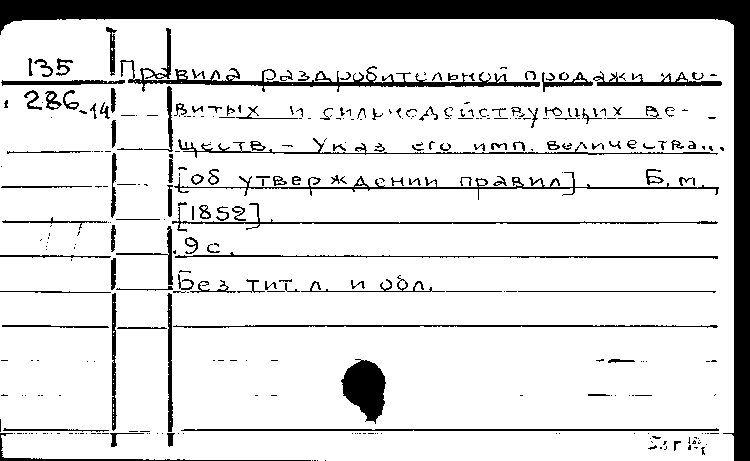 135 Правила раздробительной продажи ядо-
286-14 витых и сильнодействующих ве-
ществ. – Указ его имп. величества...
[об утверждении правил]. Б.м.,
[1852].
9 с.
Без тит. л. и обл.